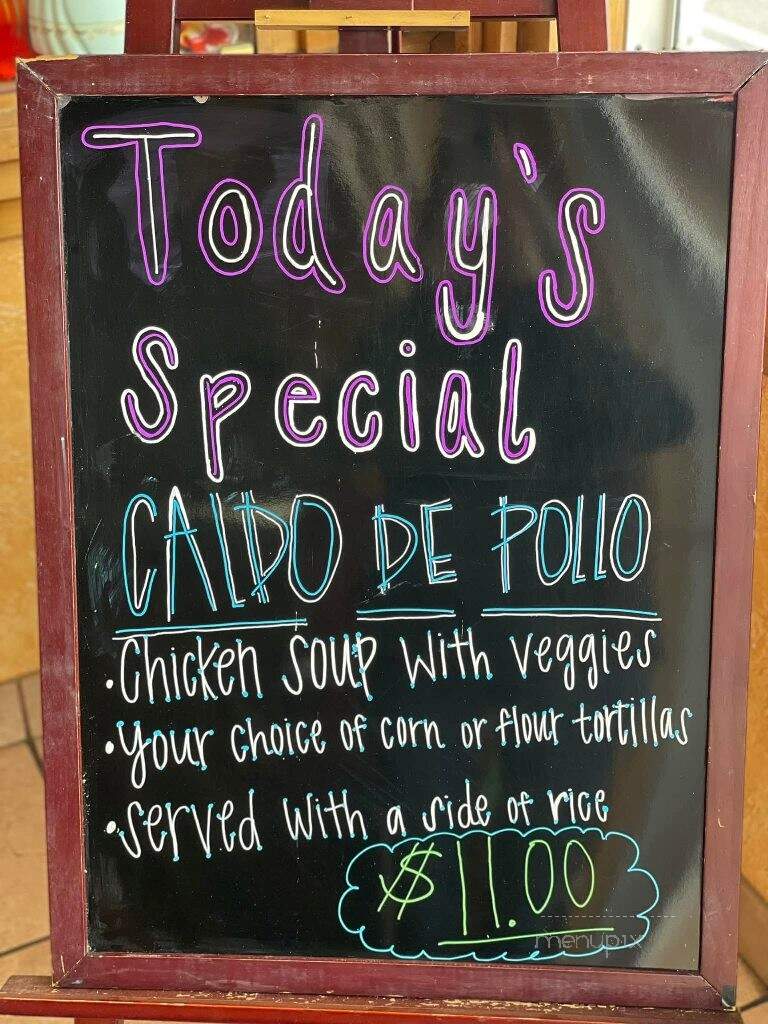 Today's
Special
CALDO DE POLLO
• Chicken soup with veggies
• your choice of corn or flour tortillas
• served with a side of rice
$11.00
menupix